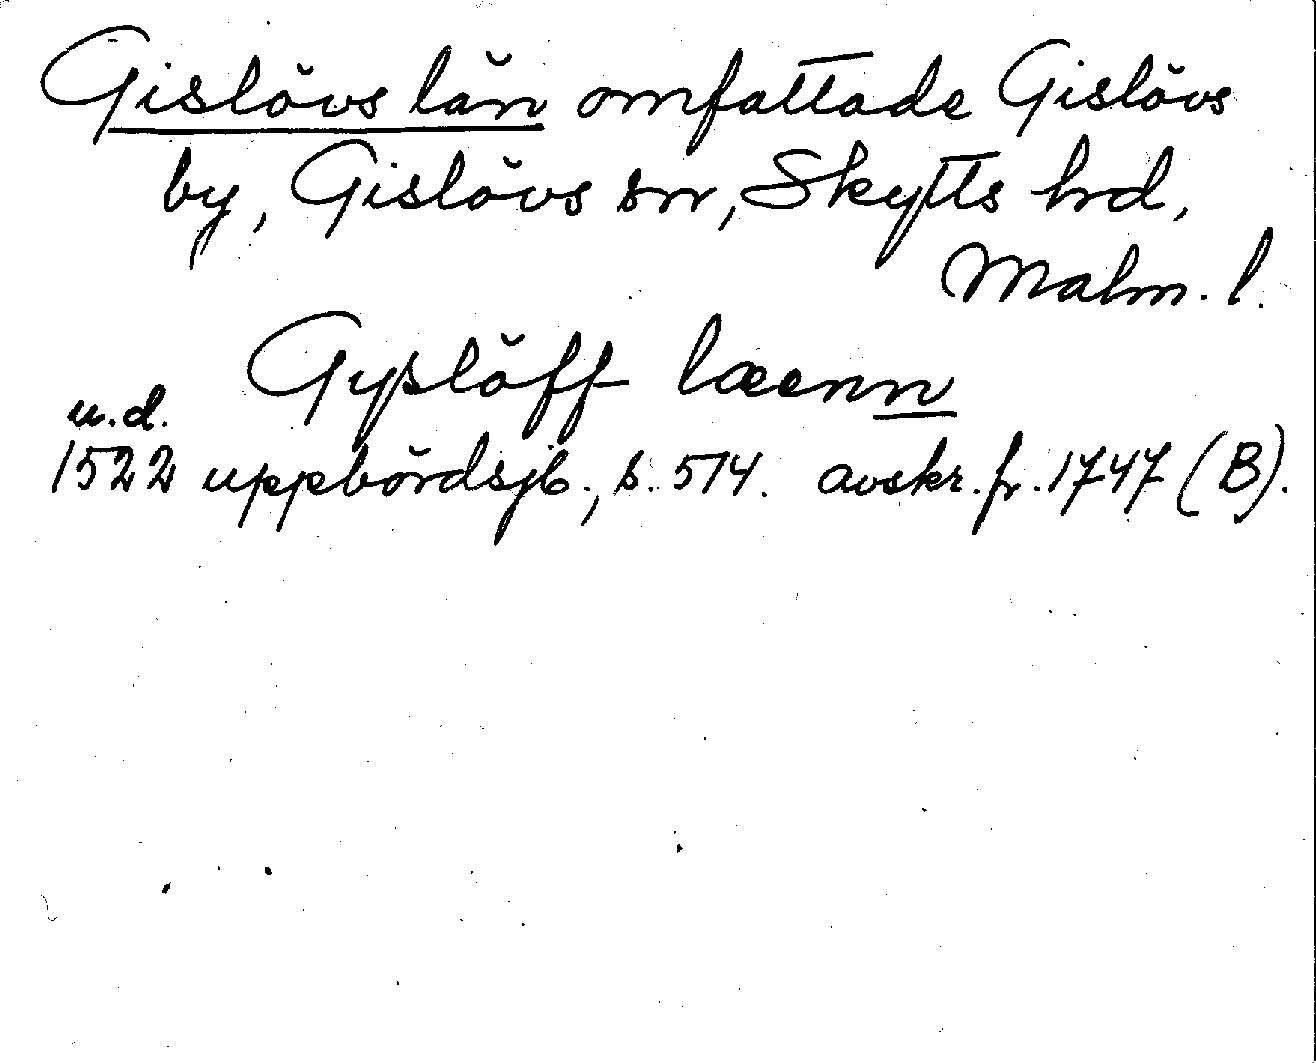 Gislövs län omfattade Gislövs
by, Gislövs sn, Skytts hrd,
Malm. l.
Gyslöff lœnn
u.d.
1522 uppbördsjb., s. 514. avskr. fr. 1747 (B).